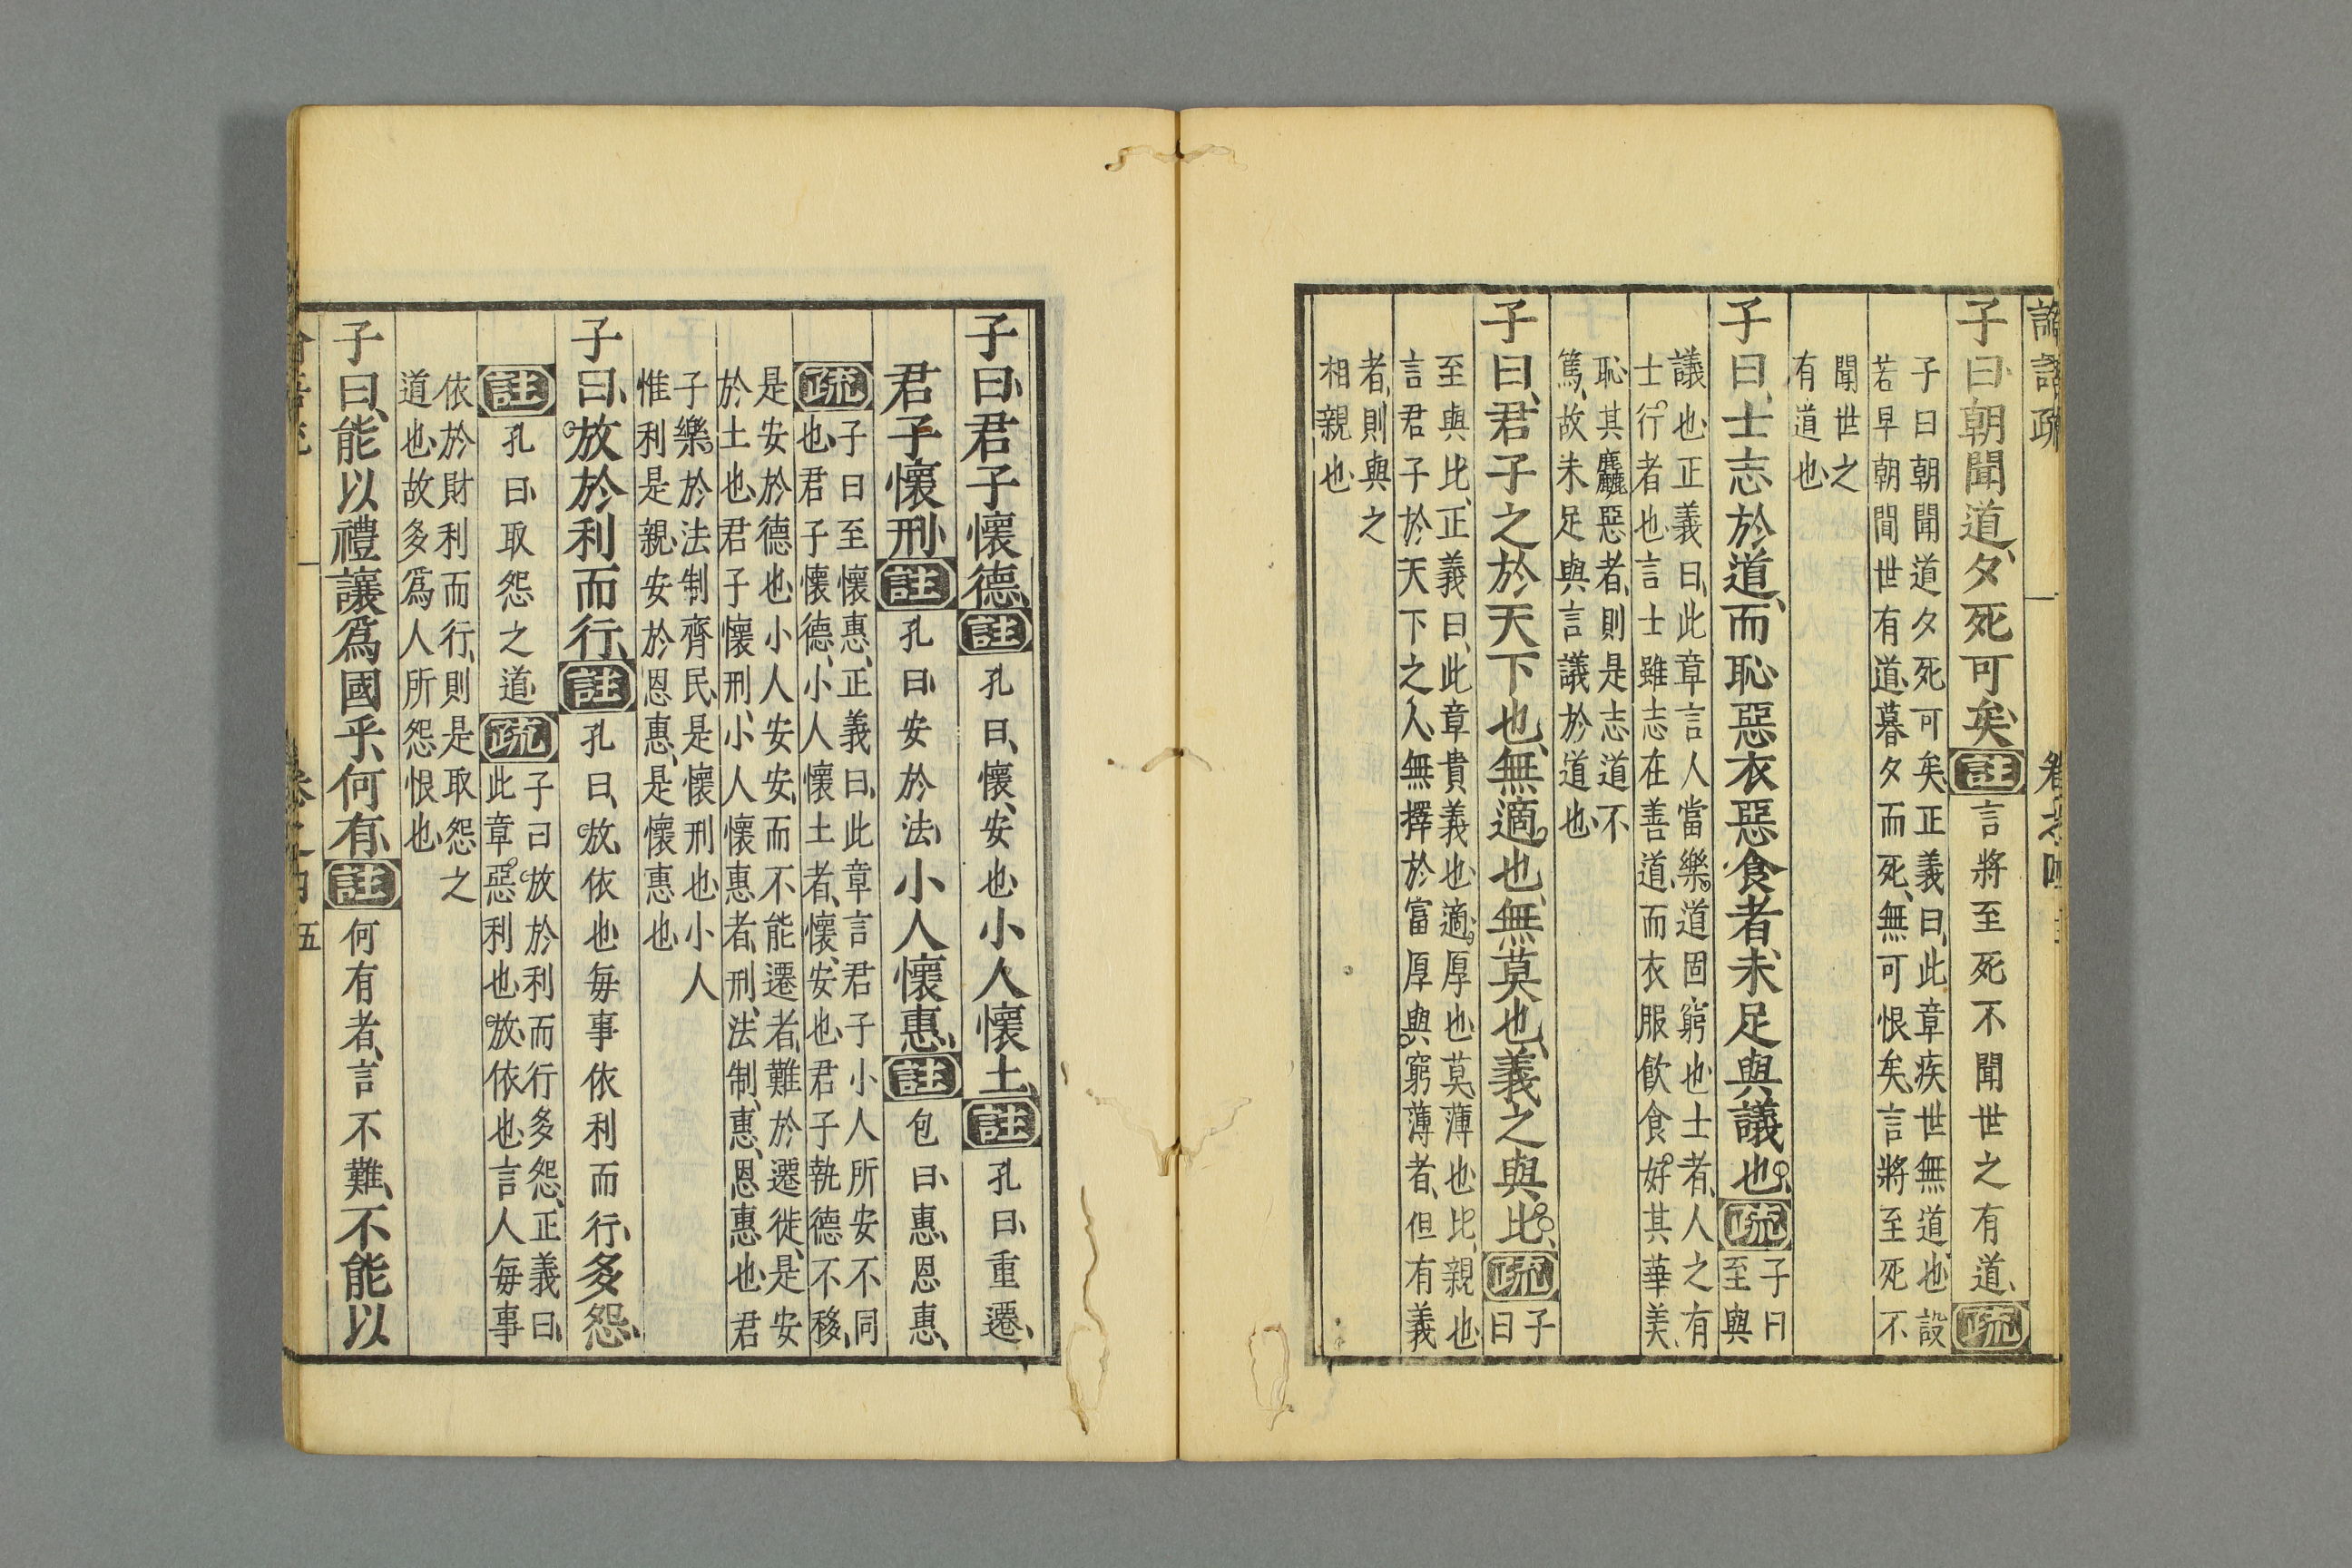 子曰朝聞道夕死可矣註言將至死不聞世之有道疏
子曰朝聞道夕死可矣正義曰此章疾世無道也設
若早朝聞世有道暮夕而死無可恨矣言將至死不
聞世之
有道也
子曰士志於道而恥惡衣惡食者未足與議也疏子曰
至與
議也正義曰此章言人當樂道固窮也士者人之有
士行者也言士雖志在善道而衣服飲食好其華美
恥其麤惡者則是志道不
篤故未足與言議於道也
子曰君子之於天下也無適也無莫也義之與比疏子
曰
至與比正義曰此章貴義也適厚也莫薄也比親也
言君子於天下之人無擇於富厚與窮薄者但有義
者則與之
相親也
子曰君子懷德註孔曰懷安也小人懷土註孔曰重遷
君子懷刑註孔曰安於法小人懷惠註包曰惠恩惠
疏子曰至懷惠正義曰此章言君子小人所安不同
也君子懷德小人懷土者懷安也君子執德不移
是安於德也小人安安而不能遷者難於遷徙是安
於土也君子懷刑小人懷惠者刑法制惠恩惠也君
子樂於法制齊民是懷刑也小人
惟利是親安於恩惠是懷惠也
子曰放於利而行註孔曰放依也每事依利而行多怨
註孔曰取怨之道疏子曰放於利而行多怨正義曰
此章惡利也放依也言人每事
依於財利而行則是取怨之
道也故多爲人所怨恨也
子曰能以禮讓爲國乎何有註何有者言不難不能以
五